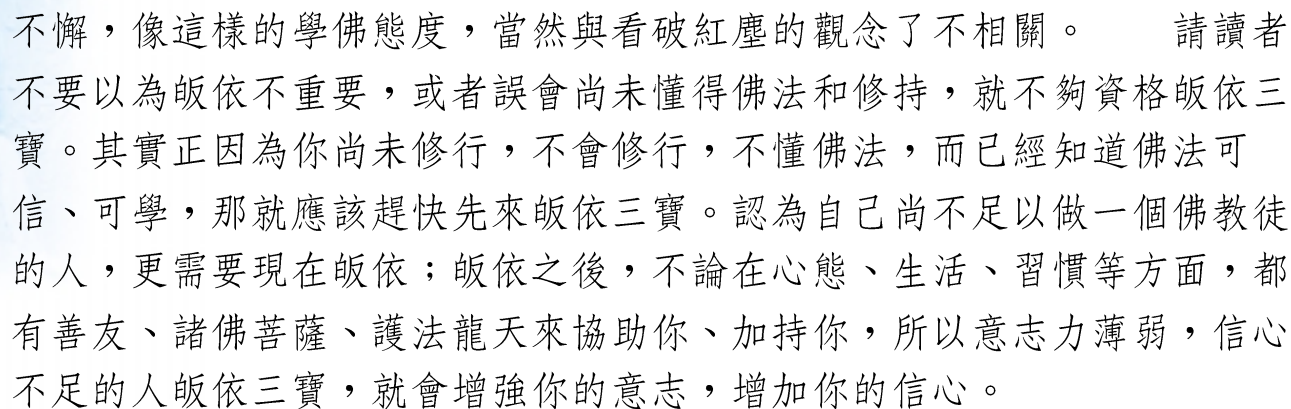 不懈，像這樣的學佛態度，當然與看破紅塵的觀念了不相關。　　請讀者
不要以為皈依不重要，或者誤會尚未懂得佛法和修持，就不夠資格皈依三
寶。其實正因為你尚未修行，不會修行，不懂佛法，而已經知道佛法可
信、可學，那就應該趕快先來皈依三寶。認為自己尚不足以做一個佛教徒
的人，更需要現在皈依；皈依之後，不論在心態、生活、習慣等方面，都
有善友、諸佛菩薩、護法龍天來協助你、加持你，所以意志力薄弱，信心
不足的人皈依三寶，就會增強你的意志，增加你的信心。